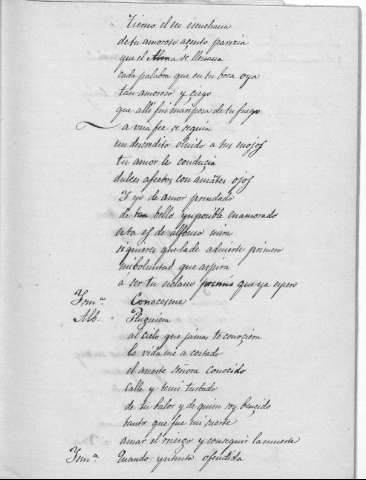 tierno el ser escuchaua
de tu amoroso açento parezia
que el Alma se lleuaua
cada palabra que en tu boca oya
tan amoroso y ciego
que alli fui mariposa de tu fuego
a una fee se seguia
un descredito oluido a mis enojos
tu amor le conducia
dulces afectos con amantes ojos
Y yo de amor prendado
de tan bello ymposible enamorado
esta es de alfonso
si quieres que lade advierte primero
mi boluntad que aspira
a ser tu esclauo premio que ya espero
Ysmª Conocesme
Alb. Pluguiera
al cielo que jamas te conociera
la vida me a costado
el amarte señora conocido
calle y temi turbado
de tu balor y de quien soy bencido
tanto que fue mi suerte
amar el riesgo y conseguir la muerte
Ysmª Quando yntento ofendida